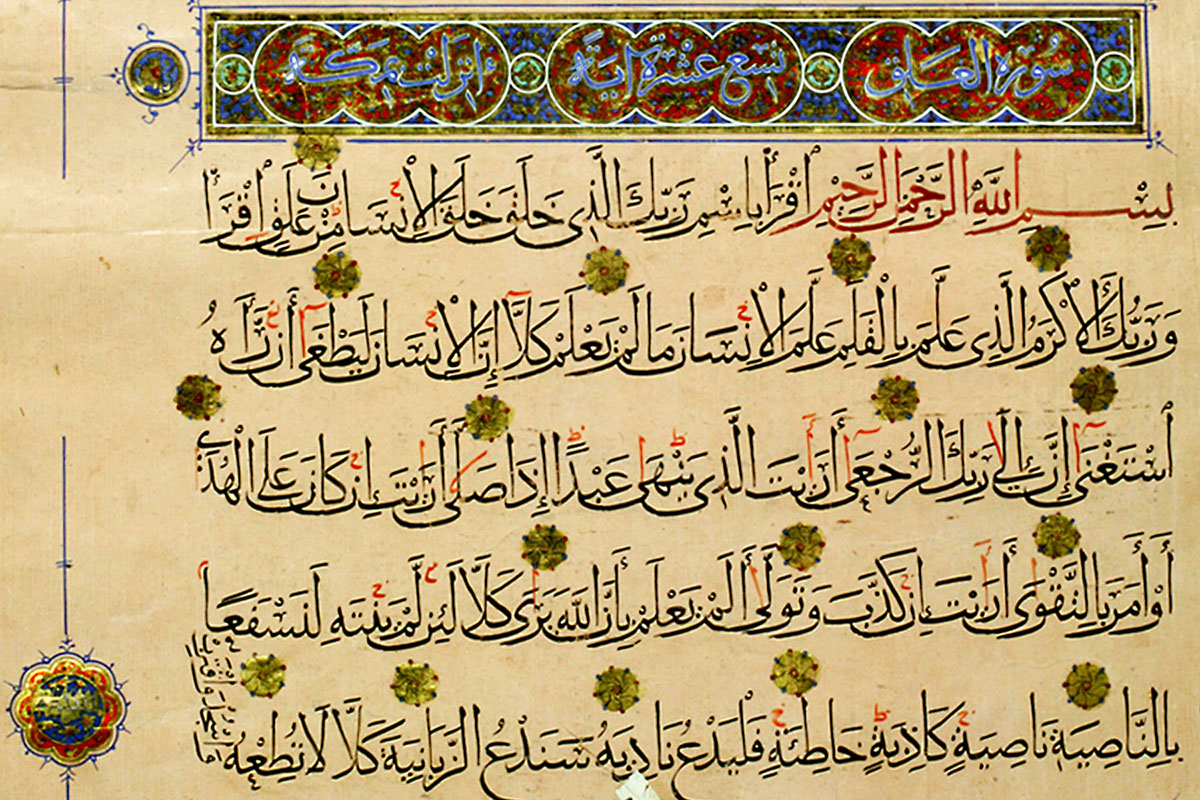 سورة العلق تسع عشرة اية انزلت بمكة
بِسْمِ اللَّهِ الرَّحْمَنِ الرَّحِيمِ اقْرَأْ بِاسْمِ رَبِّكَ الَّذِي خَلَقَ خَلَقَ الْاِنْسَانَ مِنْ عَلَقٍ اقْرَأْ
وَرَبُّكَ الْاَكْرَمُ الَّذِي عَلَّمَ بِالْقَلَمِ عَلَّمَ الْاِنْسَانَ مَا لَمْ يَعْلَمْ كَلَّا إِنَّ الْاِنْسَانَ لَيَطْغَى أَنْ رَآهُ
اسْتَغْنَى إِنَّ إِلَى رَبِّكَ الرُّجْعَى أَرَأَيْتَ الَّذِي يَنْهَى عَبْدًا إِذَا صَلَّى أَرَأَيْتَ إِنْ كَانَ عَلَى الْهُدَى
أَوْ أَمَرَ بِالتَّقْوَى أَرَأَيْتَ إِنْ كَذَّبَ وَتَوَلَّى أَلَمْ يَعْلَمْ بِأَنَّ اللَّهَ يَرَى كَلَّا لَئِنْ لَمْ يَنْتَهِ لَنَسْفَعًا
بِالنَّاصِيَةِ نَاصِيَةٍ كَاذِبَةٍ خَاطِئَةٍ فَلْيَدْعُ نَادِيَهُ سَنَدْعُ الزَّبَانِيَةَ كَلَّا لَا تُطِعْهُ
وَاسْجُدْ وَاقْتَرِبْ